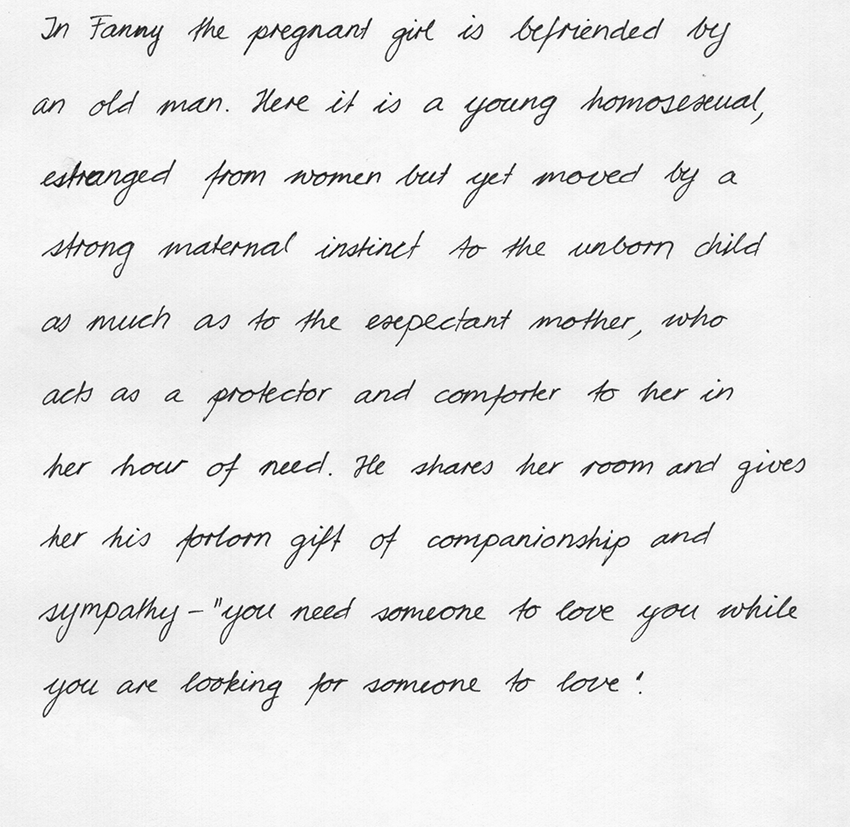 In Fanny the pregnant girl is befriended by
an old man. Here it is a young homosexual,
estranged from women but yet moved by a
strong maternal instinct to the unborn child
as much as to the expectant mother, who
acts as a protector and comforter to her in
her hour of need. He shares her room and gives
her his forlorn gift of companionship and
sympathy – "you need someone to love you while
you are looking for someone to love".